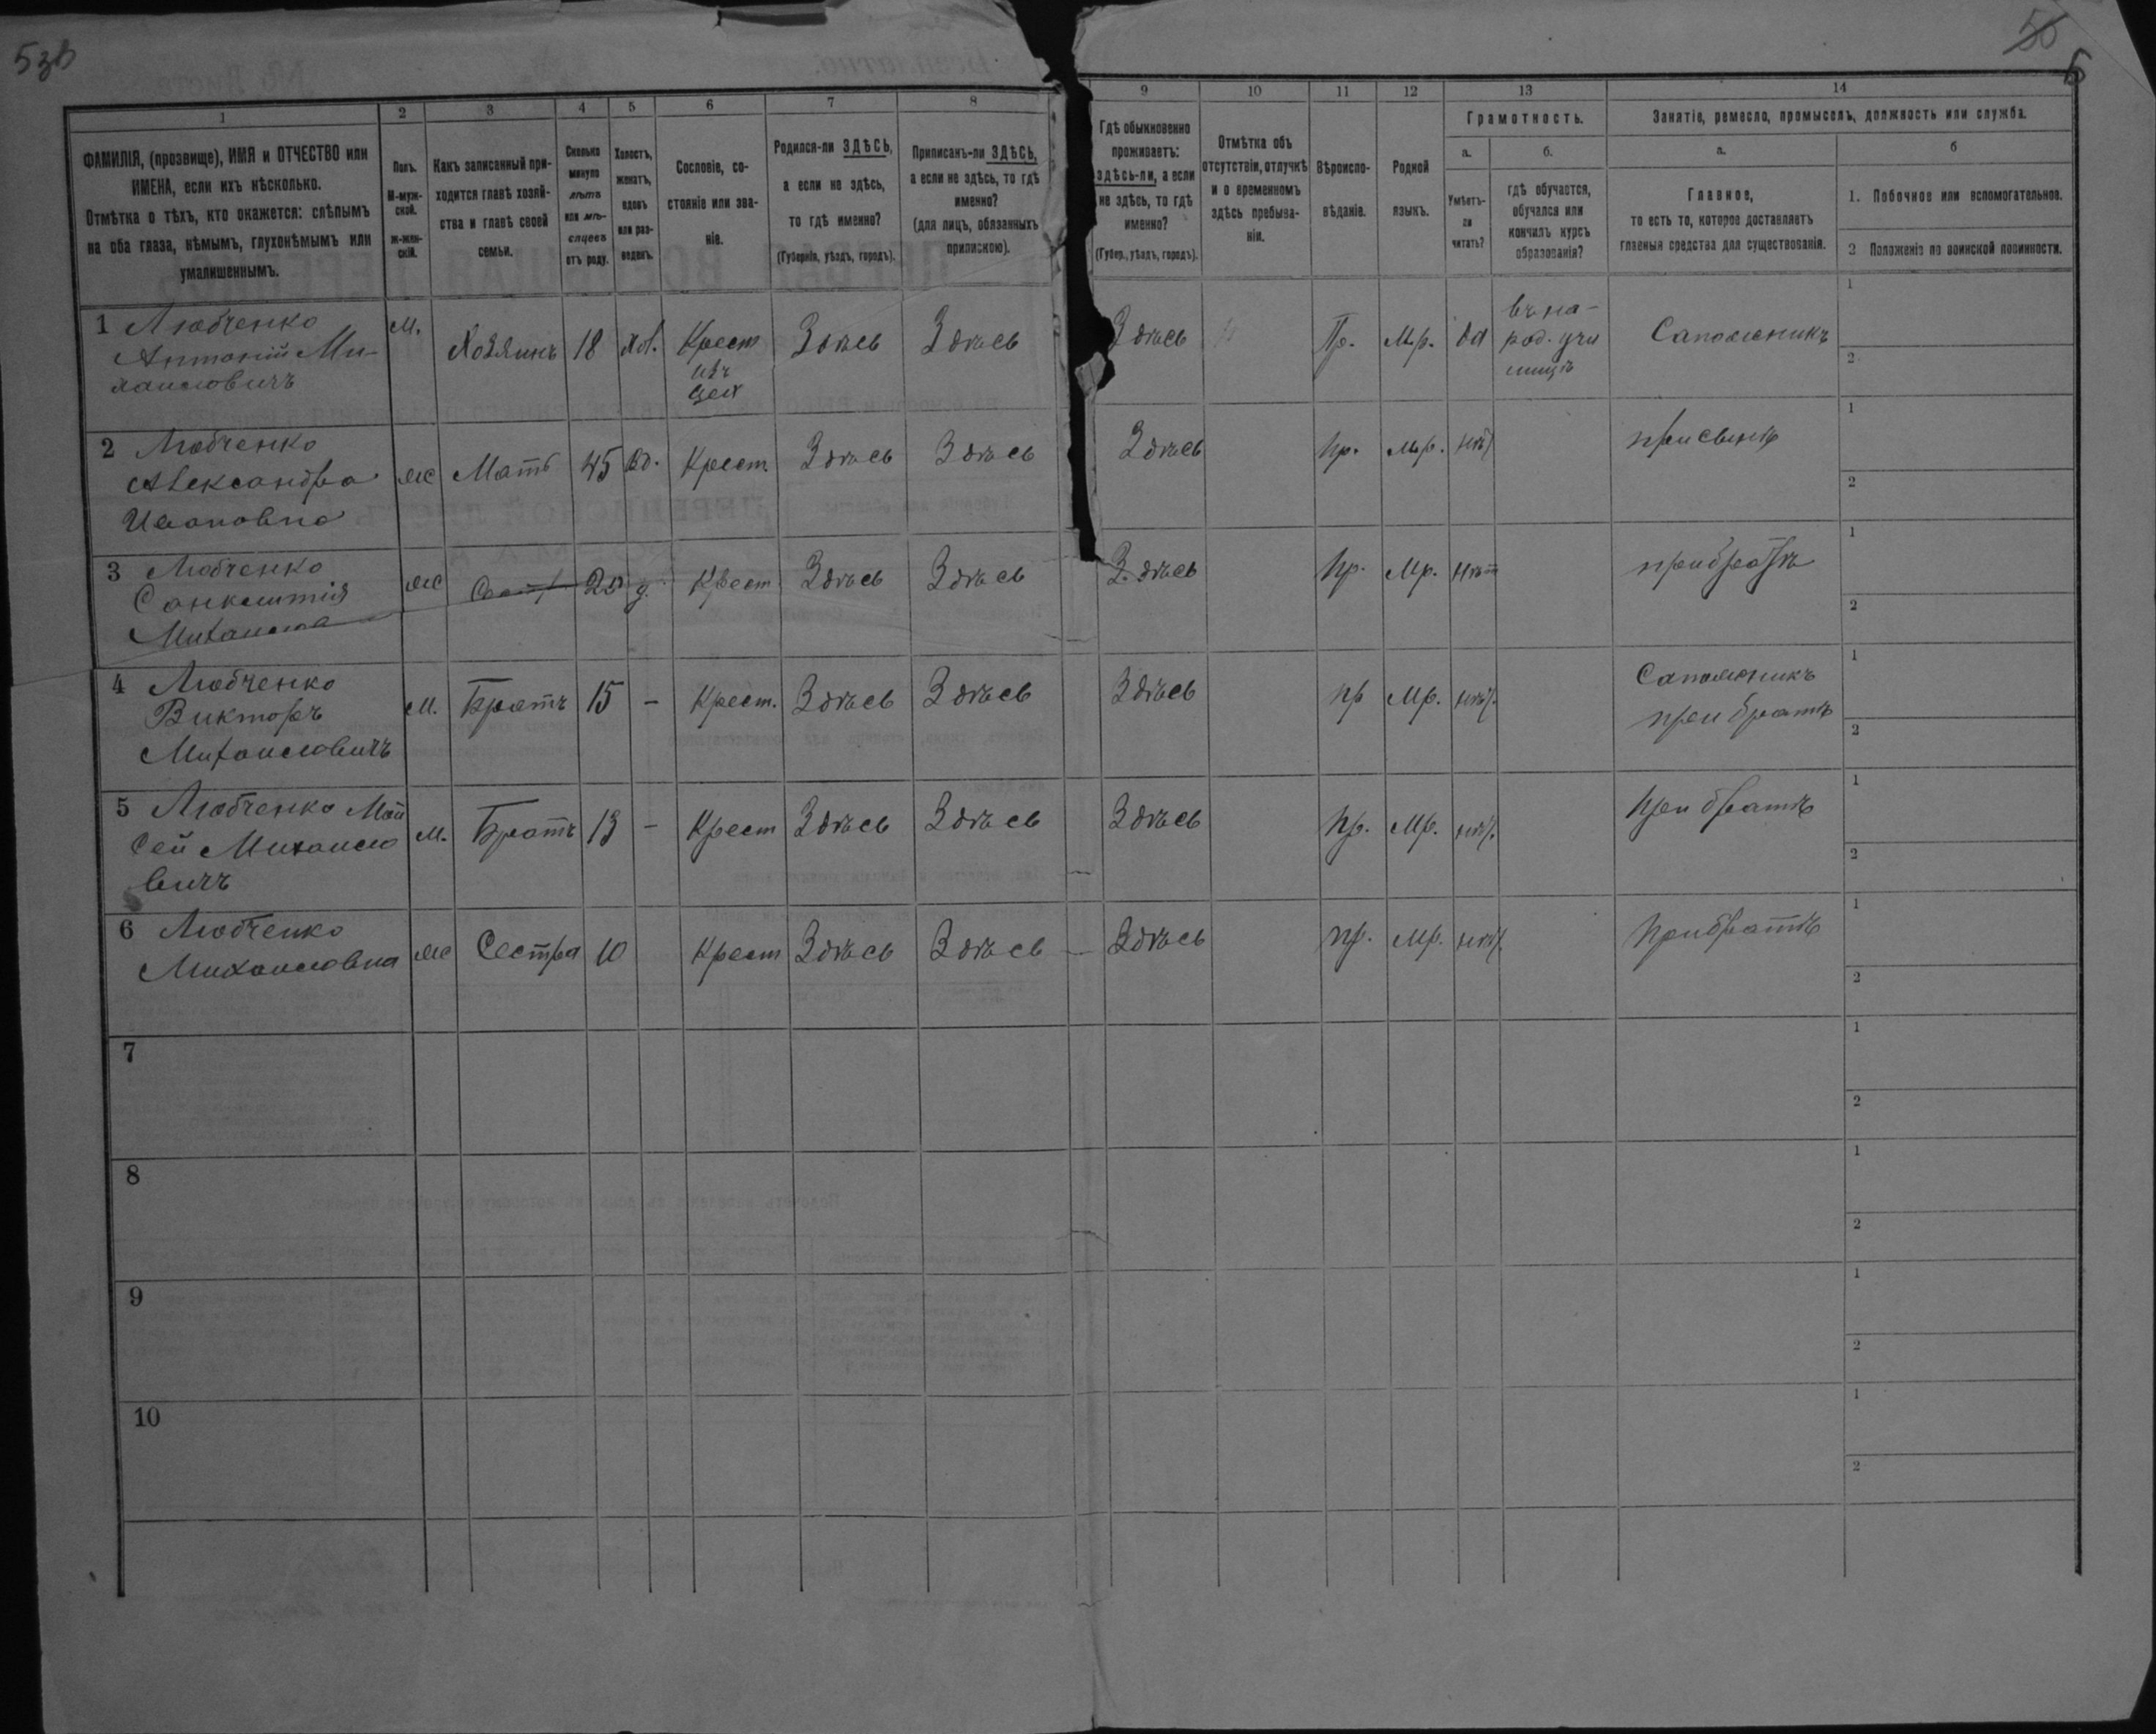 53об
50
6
1
2
3
4
5
6
7
8
9
10
11
12
13
14
ФАМИЛІЯ, (прозвище), ИМЯ и ОТЧЕСТВО или
ИМЕНА, если ихъ нѣсколько.
Отмѣтка о тѣхъ, кто окажется: слѣпымъ
на оба глаза, нѣмымъ, глухонѣмымъ или
умалишеннымъ.
Полъ.
М-муж-
ской.
Ж-жен-
скій.
Какъ записанный при-
ходится главѣ хозяй-
ства и главѣ своей
семьи.
Сколько
минуло
лѣтъ
или мѣ-
сяцевъ
отъ роду.
Холостъ,
женатъ,
вдовъ
или раз-
веденъ.
Сословіе, со-
стояніе или зва-
ніе.
Родился-ли ЗДѢСЬ,
а если не здѣсь,
то гдѣ именно?
(Губернія, уѣздъ, городъ).
Приписанъ-ли ЗДѢСЬ,
а если не здѣсь, то гдѣ
именно?
(для лицъ, обязанныхъ
припискою).
Гдѣ обыкновенно
проживаетъ:
здѣсь-ли, а если
не здѣсь, то гдѣ
именно?
(Губер., уѣздъ, городъ).
Отмѣтка объ
отсутствіи, отлучкѣ
и о временномъ
здѣсь пребыва-
ніи.
Вѣроиспо-
вѣданіе.
Родной
языкъ.
Грамотность.
а.
Умѣетъ-
ли
читать?
б.
гдѣ обучается,
обучался или
кончилъ курсъ
образованія?
Занятіе, ремесло, промыселъ, должность или служба.
а.
Главное,
то есть то, которое доставляетъ
главныя средства для существованія.
б
1. Побочное или вспомогательное.
2 Положеніе по воинской повинности.
1 Любченко
Антоній Ми-
хаиловичъ
м.
Хозяинъ
18
хол.
Крест
изъ
Здѣсь
Здѣсь
Здѣсь
Пр.
Мр.
да
въ на-
род. учи
лищѣ
Сапожникъ
1
2
2 Любченко
Александра
Ивановна
ж
Мать
45
вд.
Крест
Здѣсь
Здѣсь
Здѣсь
пр.
Мр.
нѣт
при сынѣ
1
2
3 Любченко
Михаилова
ж
д.
Крест
Здѣсь
Здѣсь
Здѣсь
пр.
Мр.
нѣт
при братѣ
1
2
4 Любченко
Викторъ
Михаиловичъ
м.
Братъ
15
-
Крест.
Здѣсь
Здѣсь
Здѣсь
пр
Мр.
нѣт.
Сапожникъ
при братѣ
1
2
5 Любченко Мои
сей Михаило
вичъ
м.
Братъ
13
-
Крест
Здѣсь
Здѣсь
Здѣсь
пр.
Мр.
нѣт.
при братѣ
1
2
6 Любченко
Михаиловна
ж
Сестра
10
Крест
Здѣсь
Здѣсь
Здѣсь
пр.
Мр.
нѣт.
при братѣ
1
2
7
1
2
8
1
2
9
1
2
10
1
2